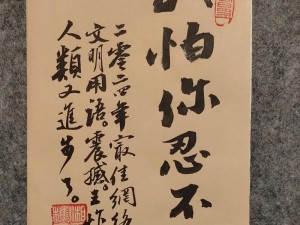 怕你忍不
二零二四年最佳網絡
文明用语。震撼。
人類又進步了。